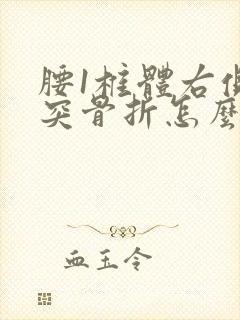 腰1柱體右側
突骨折怎麼
血玉令